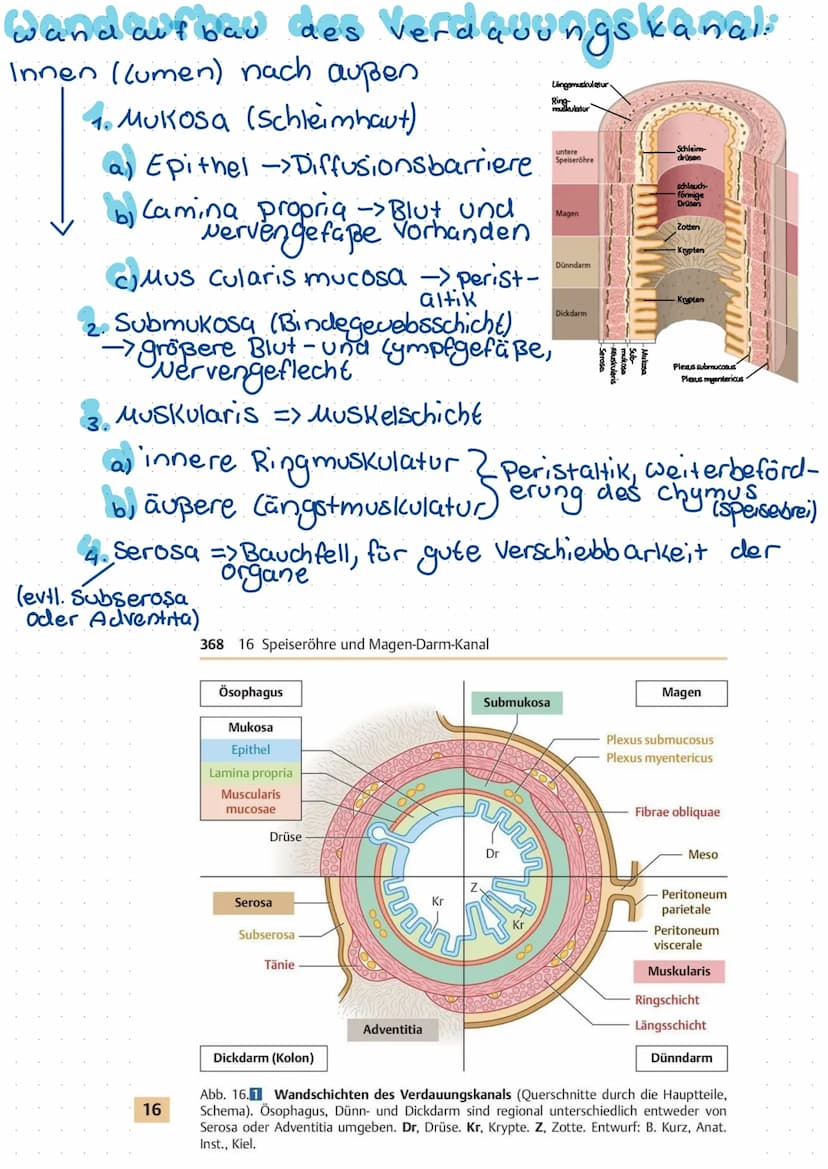 Wandaufbau des Verdauungskanal:
Innen (Lumen) nach außen
1. Mukosa (Schleimhaut)
a) Epithel → Diffusionsbarriere
b) Lamina propria → Blut und
Nervengefäße vorhanden
c) Muscularis mucosa → Perist-
altik
2. Submukosa (Bindegewebsschicht)
→ größere Blut- und Lympfgefäße,
Nervengeflecht
3. Muskularis => Muskelschicht
a) innere Ringmuskulatur
b) äußere Längstmuskulatur
Peristaltik, Weiterbeförd-
erung des Chymus
(Speisebrei)
4. Serosa => Bauchfell, für gute Verschiebbarkeit der
Organe
(evtl. Subserosa
oder Adventita)
Längsmuskulatur
Ring-
muskulatur
untere
Speiseröhre
Magen
Dünndarm
Dickdarm
Schleim-
drüsen
schlauch-
förmige
Drüsen
Zotten
Krypten
Krypten
Serosa
Muskularis
Sub-
mukosa
Mukosa
Plexus submucosus
Plexus myentericus
368 16 Speiseröhre und Magen-Darm-Kanal
Ösophagus
Magen
Submukosa
Mukosa
Epithel
Lamina propria
Muscularis
mucosae
Drüse
Plexus submucosus
Plexus myentericus
Fibrae obliquae
Dr
Meso
Z
Kr
Kr
Serosa
Subserosa
Tänie
Peritoneum
parietale
Peritoneum
viscerale
Muskularis
Ringschicht
Längsschicht
Adventitia
Dickdarm (Kolon)
Dünndarm
16
Abb. 16.1 Wandschichten des Verdauungskanals (Querschnitte durch die Hauptteile,
Schema). Ösophagus, Dünn- und Dickdarm sind regional unterschiedlich entweder von
Serosa oder Adventitia umgeben. Dr, Drüse. Kr, Krypte. Z, Zotte. Entwurf: B. Kurz, Anat.
Inst., Kiel.